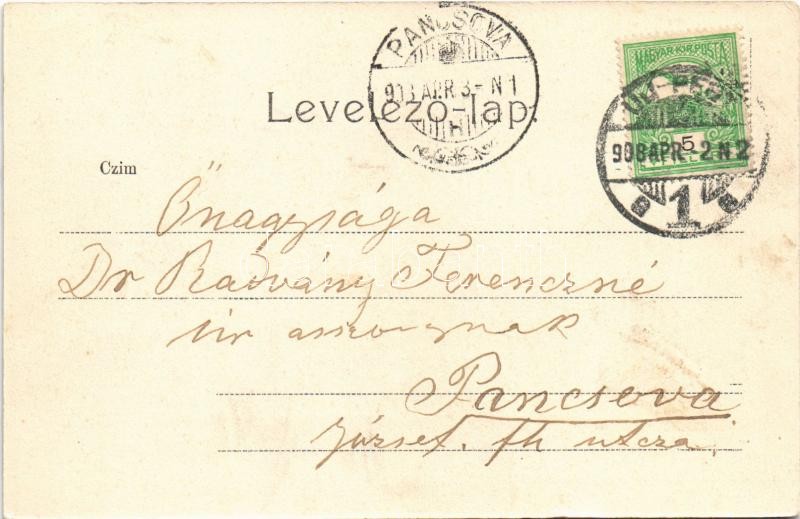 PANCSOVA
903 APR. 3 - N 1
MAGYAR KIR. POSTA
5
908 APR - 2 N 2
1
Levelező-lap.
Czim
Őnagysága
Dr Radvány Ferenczné
úr asszonynak
Pancsova
József. fh utcza